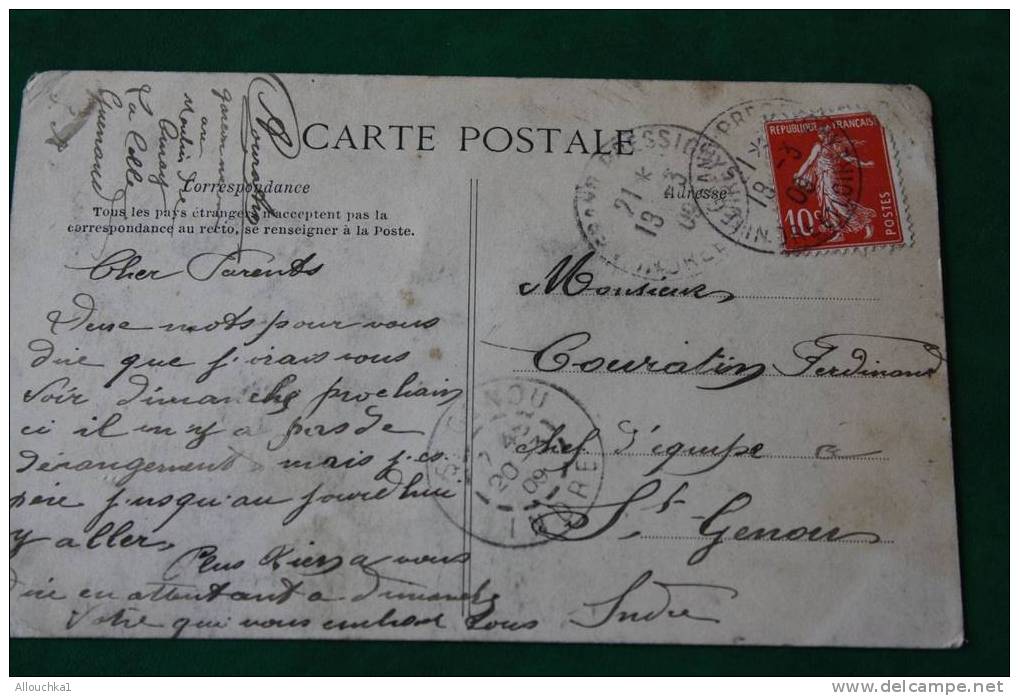 CARTE POSTALE
Correspondance
Tous les pays étrangers n'acceptent pas la
correspondance au recto, se renseigner à la Poste.
Adresse
REPUBLIQUE FRANÇAISE
10c
POSTES
21 *
13 -3
09
Cher Parents
Deux mots pour vous
dire que j'irais vous
Soir dimanche prochain
ci il n'y a pas de
dérangement mais j'es
père jusqu'au jourd'hui
y aller,
Plus Rien a vous
dire en attentant a dimanche
Votre qui vous embrasse Tous
au
Moulin de
La Celle
Guenand
Monsieur
Couratin Ferdinand
chef d'équipe à
St Genou
Indre
GENOU
INDRE
20
09
Allouchka1
delcampe.net